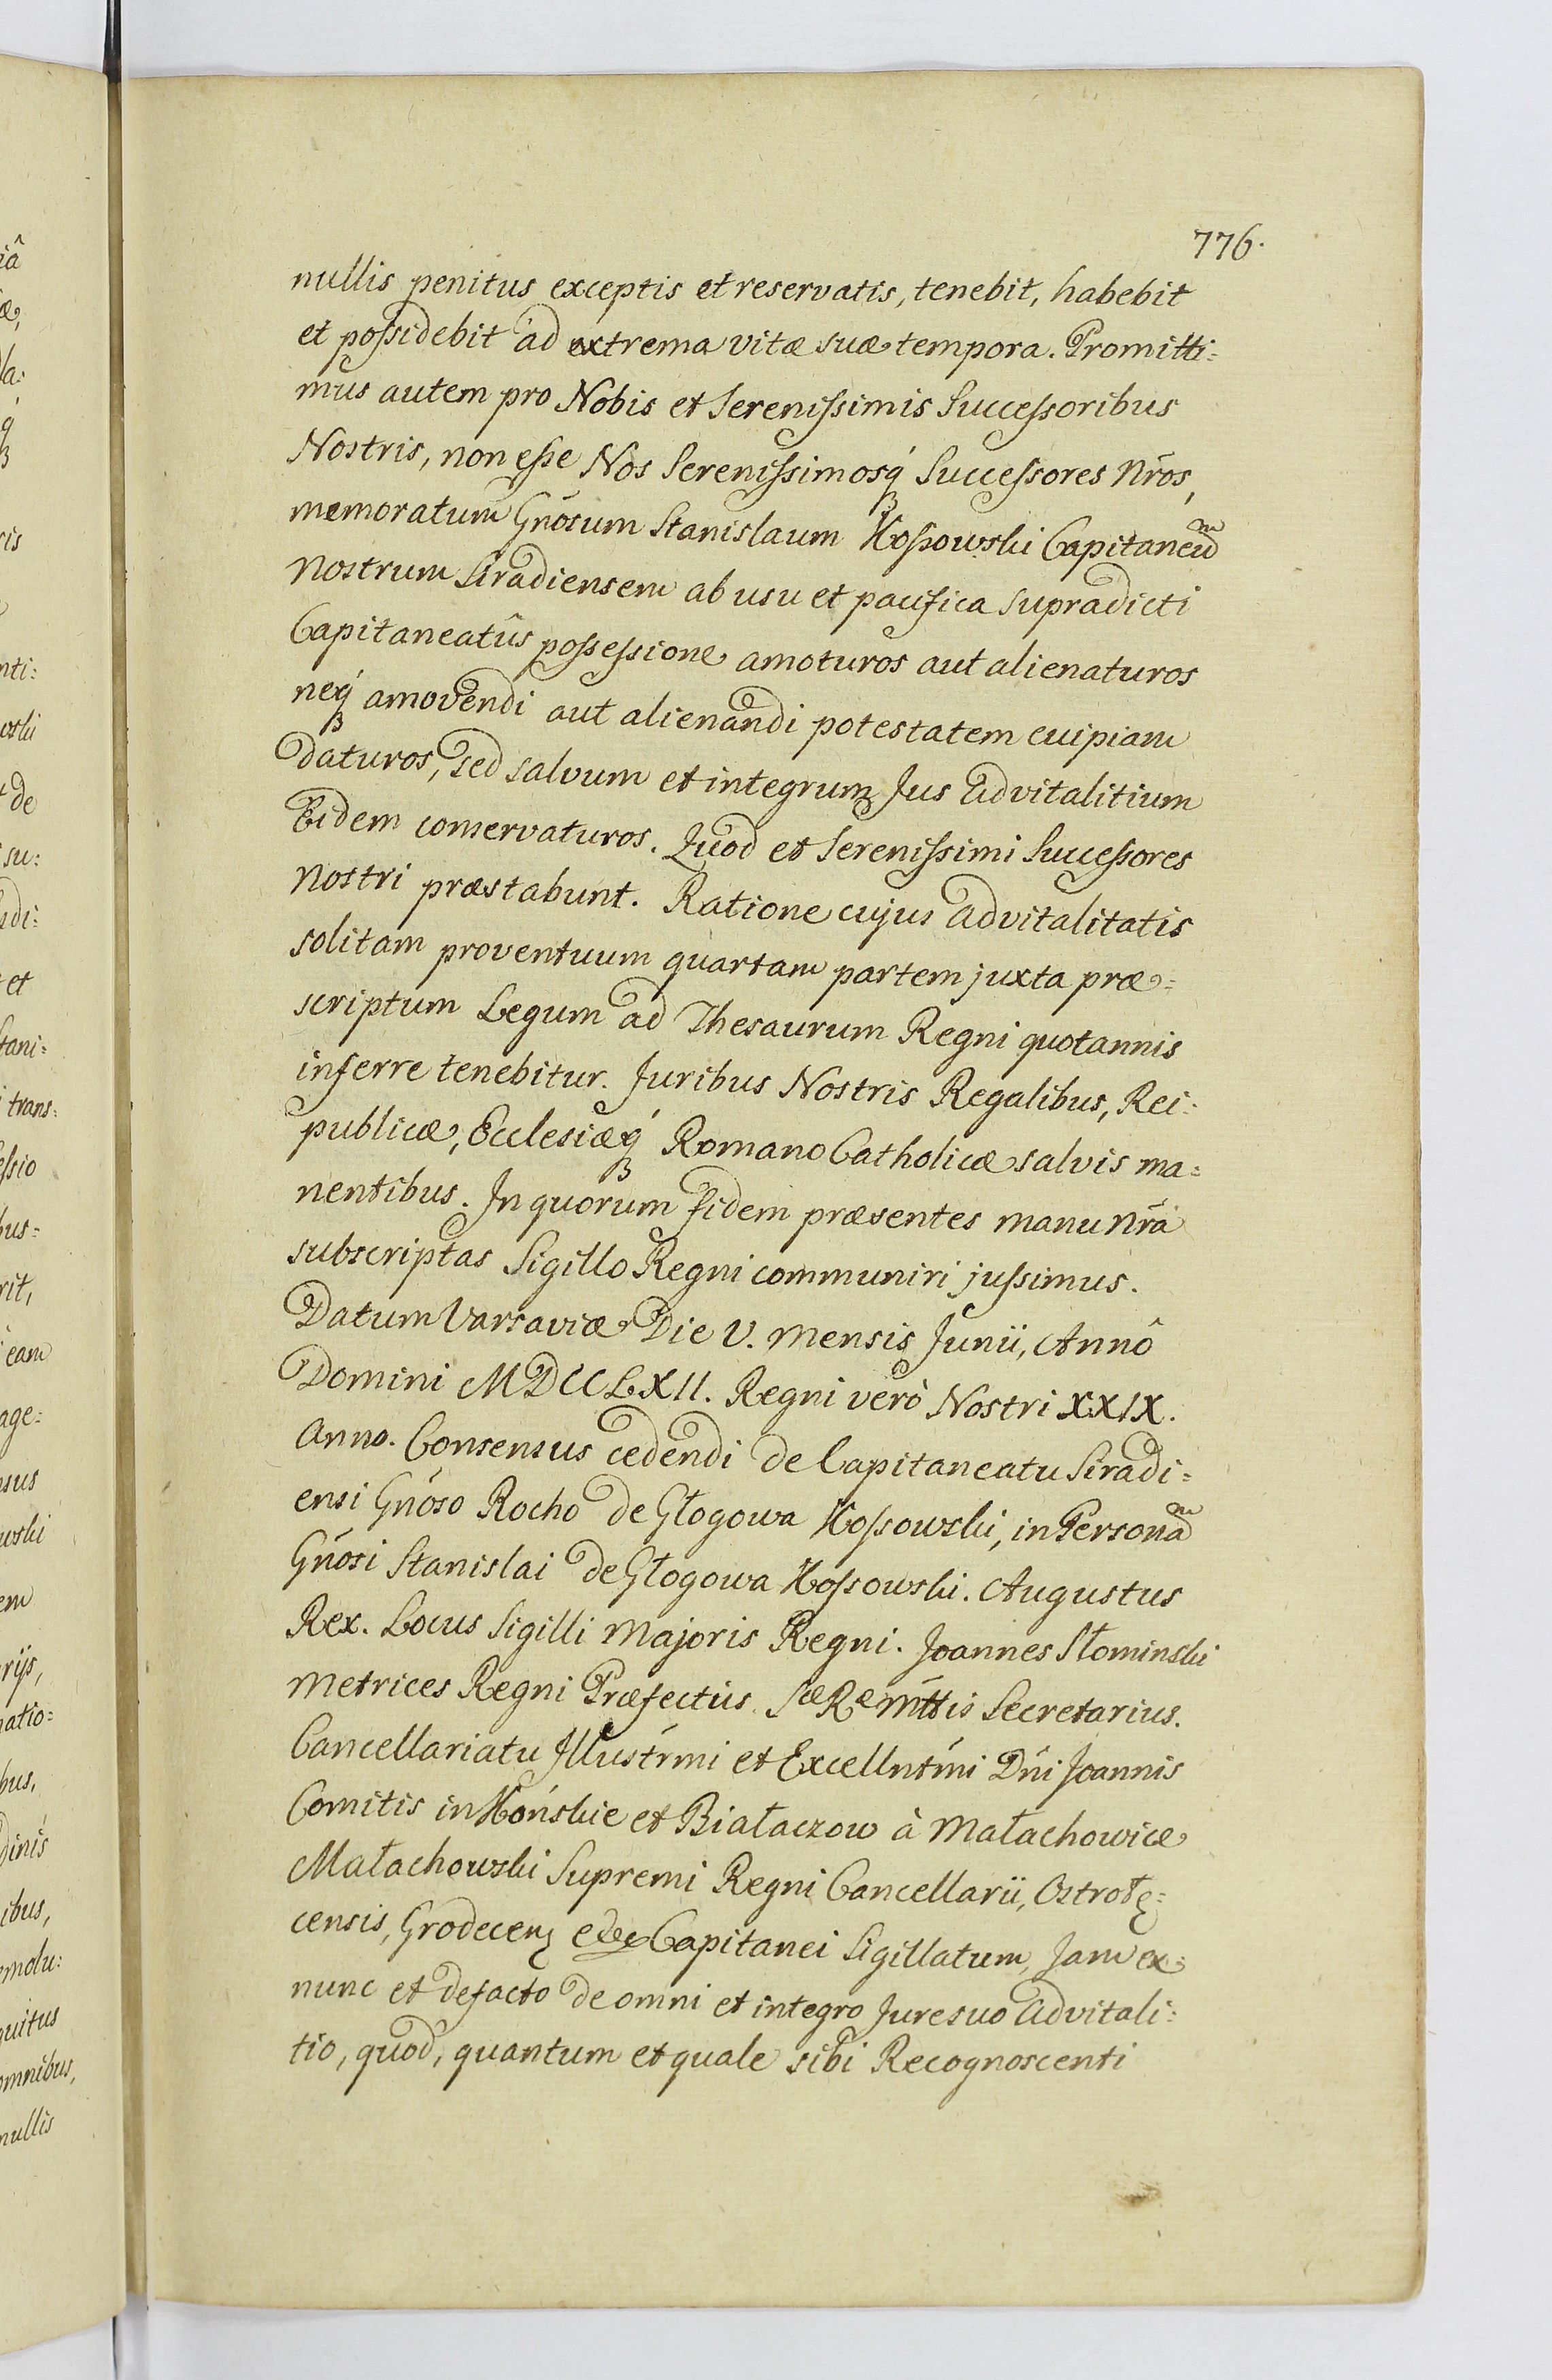 776.
nullis penitus exceptis et reservatis, tenebit, habebit
et poſsidebit ad extrema vitæ suæ tempora. Promitti=
mus autem pro Nobis et Sereniſsimis Succeſsoribus
Nostris, non eſse Nos Sereniſsimosq́ Succeſsores Nr̄os,
memoratum Gn̄osum Stanislaum Koſsowski Capitaneuᵐ
Nostrum Siradiensem ab usu et pacifica supradicti
Capitaneatûs poſseſsione amoturos aut alienaturos
neq́ amovendi aut alienandi potestatem cuipiam
daturos, sed salvum et integrum Jus advitalitium
Eidem conservaturos. Quod et Sereniſsimi Succeſsores
Nostri præstabunt. Ratione cujus advitalitatis
solitam proventuum quartam partem juxta præ=
scriptum Legum ad Thesaurum Regni quotannis
inferre tenebitur. Juribus Nostris Regalibus, Rei=
publicæ, Ecclesiæq́ Romano Catholicæ salvis ma=
nentibus. In quorum fidem præsentes manu Nr̄a
subscriptas Sigillo Regni communiri juſsimus.
Datum Varsaviæ Die V. Mensis Junii, Annô
Domini MDCCLXII. Regni verò Nostri XXIX.
Anno. Consensus cedendi de Capitaneatu Siradi=
ensi Gn̄oso Rocho de Głogowa Koſsowski, in Personaᵐ
Gn̄osi Stanislai de Głogowa Koſsowski. Augustus
Rex. Locus Sigilli Majoris Regni. Joannes Słominski
Metrices Regni Præfectus. Sæ Ræ Mttis Secretarius.
Cancellariatu Illustr̄mi et Excellnt̄mi Dn̄i Joannis
Comitis in Końskie et Białaczow à Małachowice
Małachowski Supremi Regni Cancellarii, Ostrołę=
censis, Grodecen̄ Capitanei Sigillatum, Jam ex=
nunc et defacto de omni et integro Jure suo advitali=
tio, quod, quantum et quale sibi Recognoscenti